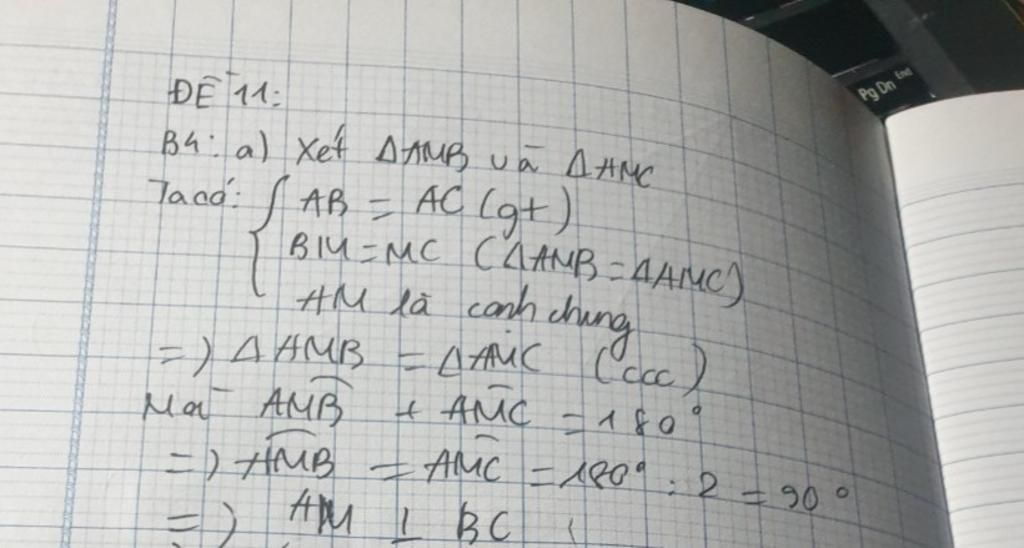 ĐỀ 11:
B4: a) Xét ΔAMB và ΔAMC
Ta có: { AB = AC (gt)
BM = MC (ΔAMB = ΔAMC)
AM là cạnh chung
=) ΔAMB = ΔAMC (ccc)
Mà AMB + AMC = 180°
=) AMB = AMC = 180° : 2 = 90°
=) AM ⊥ BC
Pg Dn End